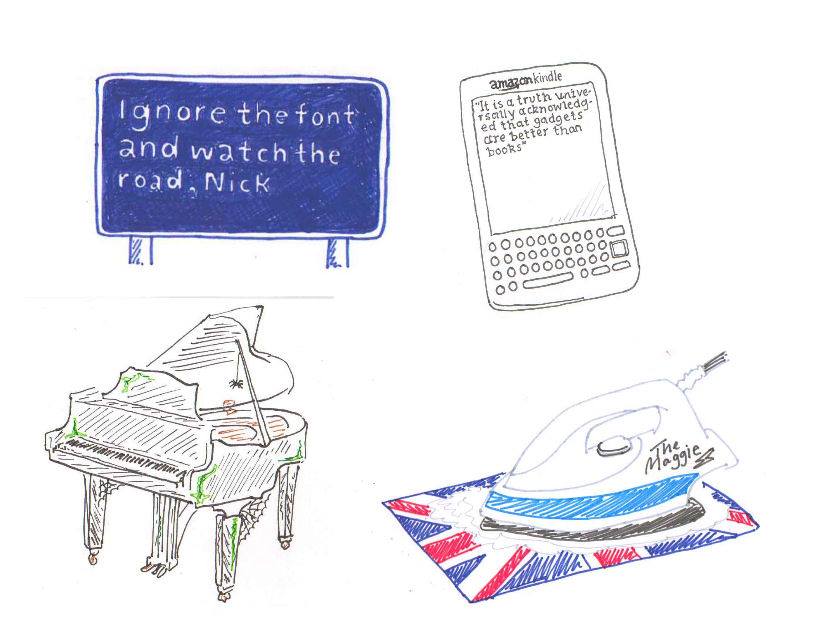 Ignore the font
and watch the
road, Nick
amazonkindle
"It is a truth unive-
rsally acknowledg-
ed that gadgets
are better than
books"
The
Maggie